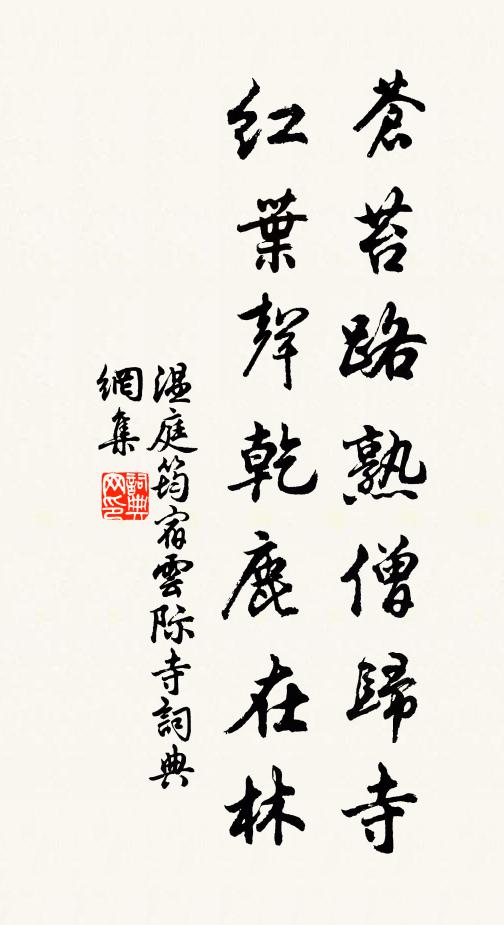 蒼苔路熟僧歸寺
紅葉聲乾鹿在林
溫庭筠宿雲際寺詞典
網集
詞典
网印